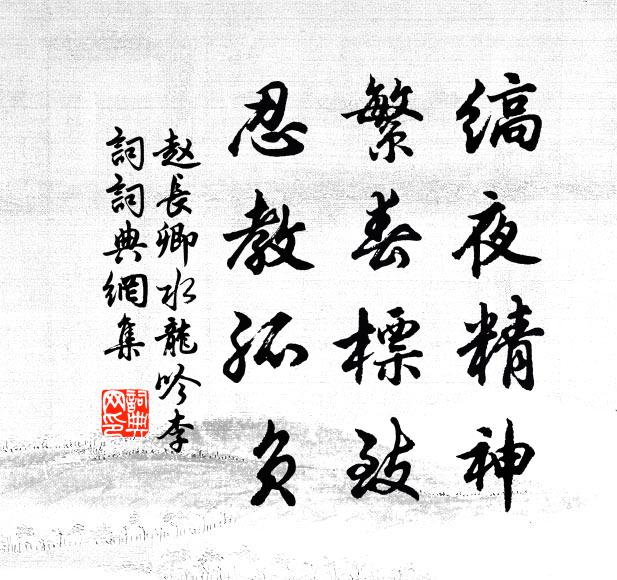 缟夜精神
繁春標致
忍教孤负
赵長卿水龍吟李
詞詞典網集
詞典
网印